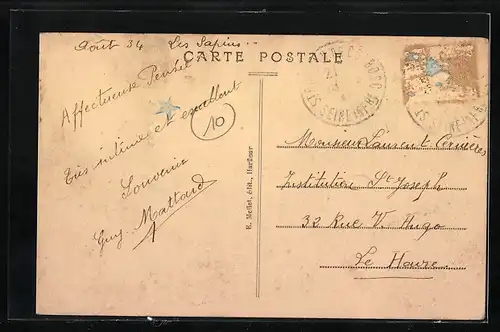 Août 34 Les Sapins..
CARTE POSTALE
Affectueuse Pensée
10
Très intime et excellent
Souvenir
Guy Mattard
R. Mellot, édit., Harfleur
Monsieur Laurent
Institution St Joseph
32 Rue V. Hugo
Le Havre.